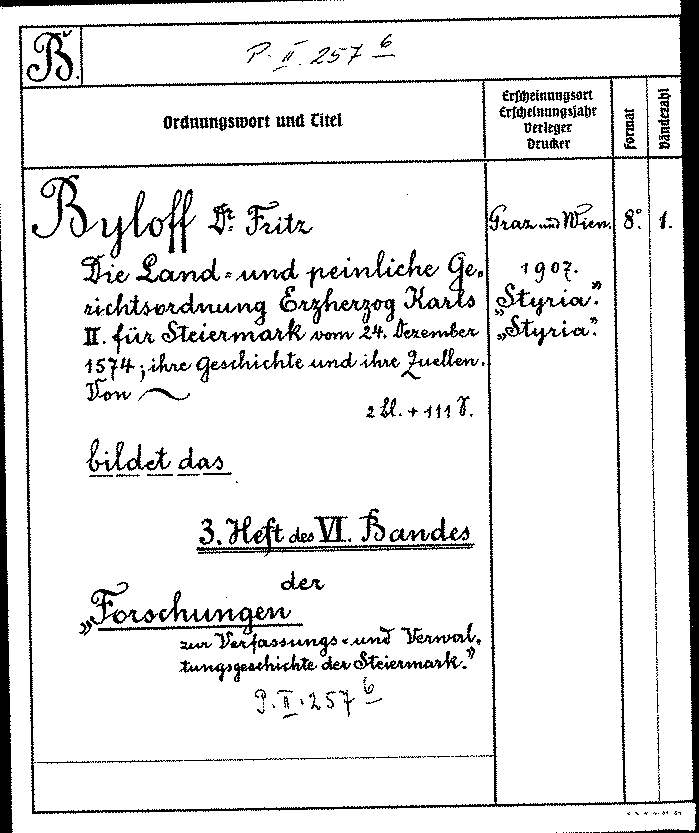 B.
P. II. 257 6
Ordnungswort und Titel
Erscheinungsort
Erscheinungsjahr
Verleger
Drucker
Format
Bändezahl
Byloff Dr. Fritz
Graz und Wien.
8°.
1.
Die Land- und peinliche Ge-
richtsordnung Erzherzog Karls
II. für Steiermark vom 24. Dezember
1574; ihre Geschichte und ihre Quellen.
Von
2 Bl. + 111 S.
1907.
"Styria".
"Styria".
bildet das
3. Heft des VI. Bandes
der
"Forschungen
zur Verfassungs- und Verwal-
tungsgeschichte der Steiermark."
P. II. 257 6